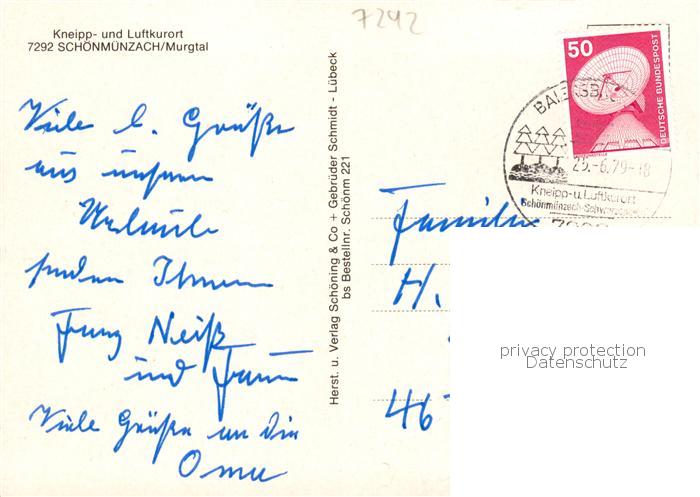 7292
Kneipp- und Luftkurort
7292 SCHÖNMÜNZACH/Murgtal
Viele l. Grüße
aus unserem
Urlaub
senden Ihnen
Franz Neiß
und Frau
Viele Grüße an die
Oma
Herst. u. Verlag Schöning & Co + Gebrüder Schmidt - Lübeck
bs Bestellnr. Schönm 221
50
DEUTSCHE BUNDESPOST
25.-6.79-18
Kneipp-u.Luftkurort
Familie
H.
46
privacy protection
Datenschutz